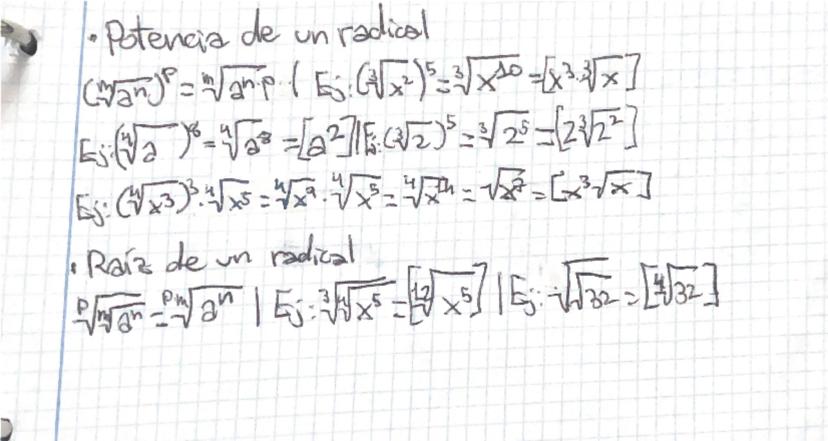 · Potencia de un radical
(ᵐ√aⁿ)ᵖ = ᵐ√aⁿ·ᵖ | Ej: (³√x²)⁵ = ³√x¹⁰ = [x³·³√x]
Ej: (⁴√a)⁸ = ⁴√a⁸ = [a²] | Ej: (³√2)⁵ = ³√2⁵ = [2³√2²]
Ej: (⁴√x³)³·⁴√x⁵ = ⁴√x⁹·⁴√x⁵ = ⁴√x¹⁴ = √x⁷ = [x³√x]
· Raíz de un radical
ᵖ√ᵐ√aⁿ = ᵖᵐ√aⁿ | Ej: ³√⁴√x⁵ = [¹²√x⁵] | Ej: √√32 = [⁴√32]